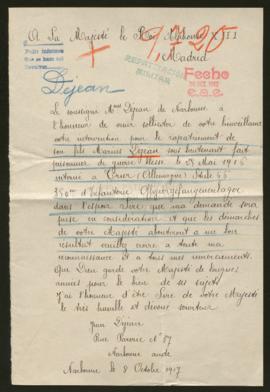 A Sa Majesté le Roi Alphonse XIII
Madrid
Dejean
Fecho
La soussigné Mme Dejean de Narbonne a
l'honneur de venir solliciter de votre bienveillance
votre intervention pour le rapatriement de
son fils Marius Dejean sous lieutenant fait
prisonnier de guerre le 25 Mai 1916
interné à (Allemagne) Stube 55
d'Infanterie
dans l'espoir Sire que ma demande sera
prise en consideration et que les démarches
de votre Majesté aboutiront a un bon
résultat veuillez croire a toute ma
reconnaissance et a tous mes remerciements.
Que Dieu garde votre Majesté de longues
années pour le bien de ses sujets
J'ai l'honneur d'être Sire de votre Majesté
le très humble et devoué serviteur
Dejean
Rue N° 87
Narbonne aude
Narbonne le 8 Octobre 1917